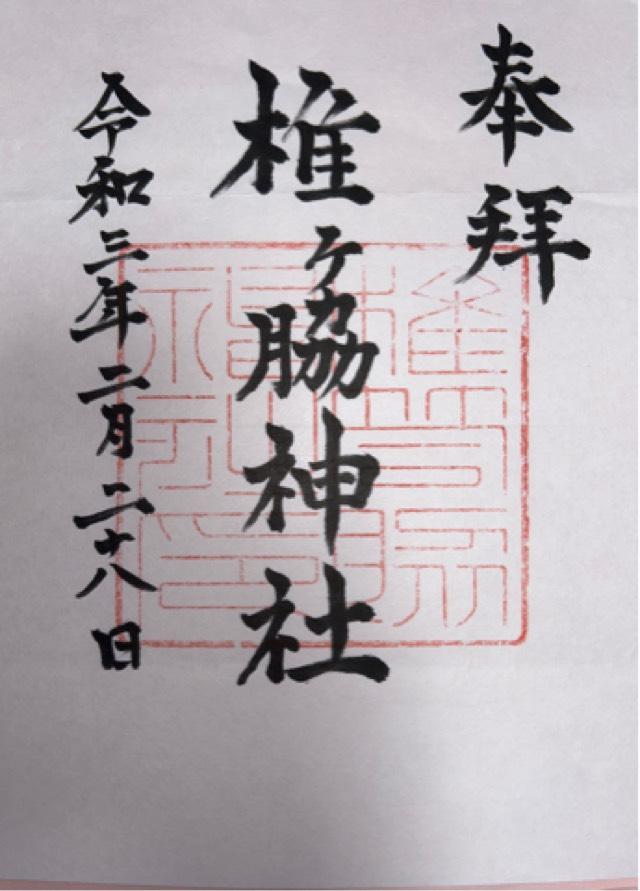 奉拝
椎ヶ脇神社
令和三年二月二十八日